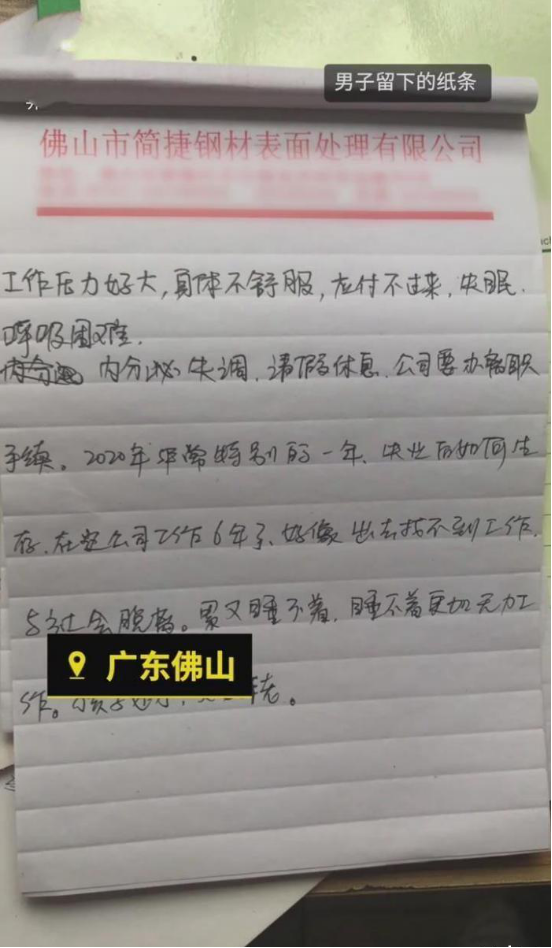 男子留下的纸条
佛山市简捷钢材表面处理有限公司
工作压力好大，身体不舒服，应付不过来，失眠．
呼吸困难．
内分泌失调．请假休息．公司要办离职
手续。2020年非常特别的一年、失业后如何生
存．在这公司工作6年了、好像出去找不到工作．
与社会脱离。累又睡不着，睡不着更加无力工
作。
广东佛山